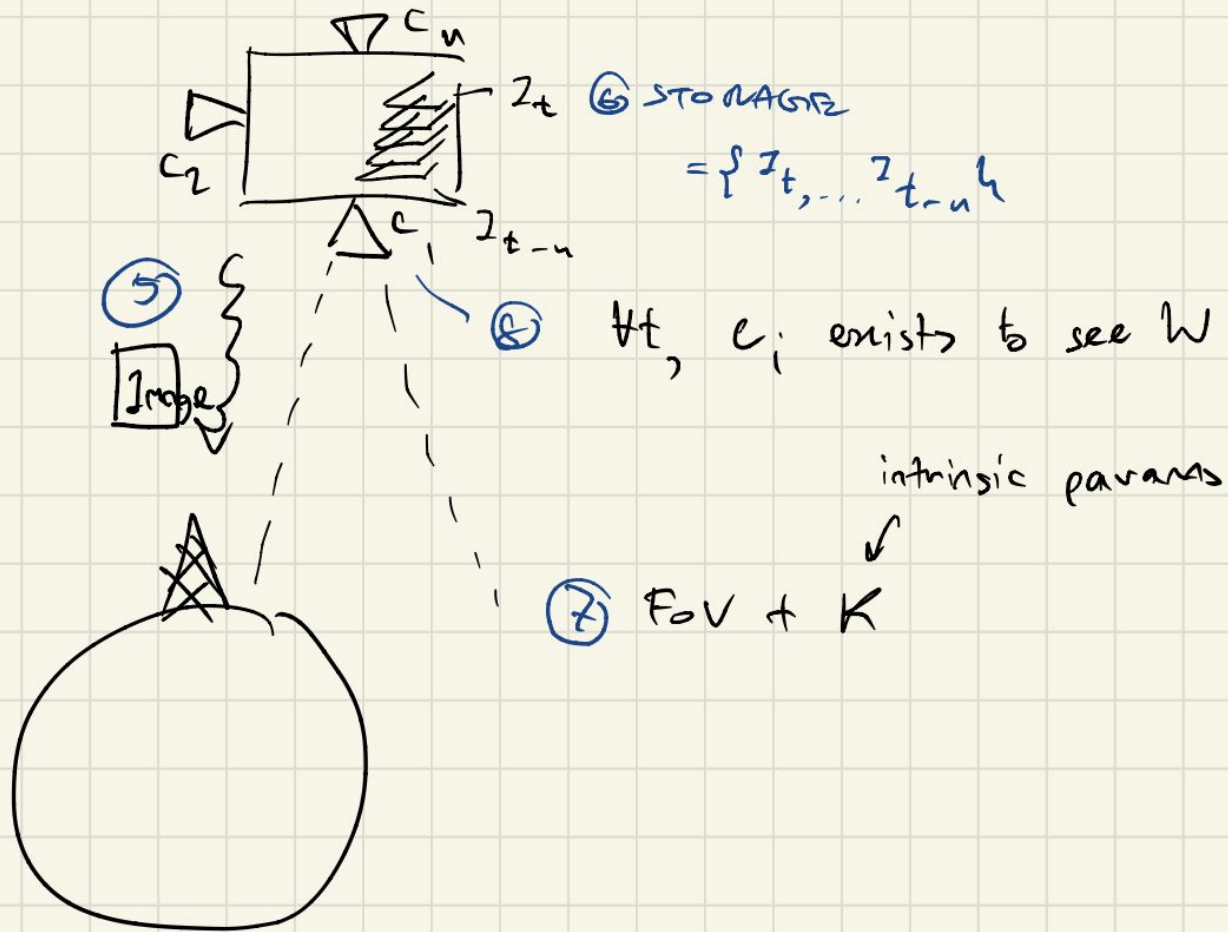 Cₙ
C₂
I_t
⑥ STORAGE
= { I_t, ... I_{t-n} }
C₁
I_{t-n}
⑤
Image
⑧ ∀t, Cᵢ exists to see W
intrinsic params
⑦ FoV + K